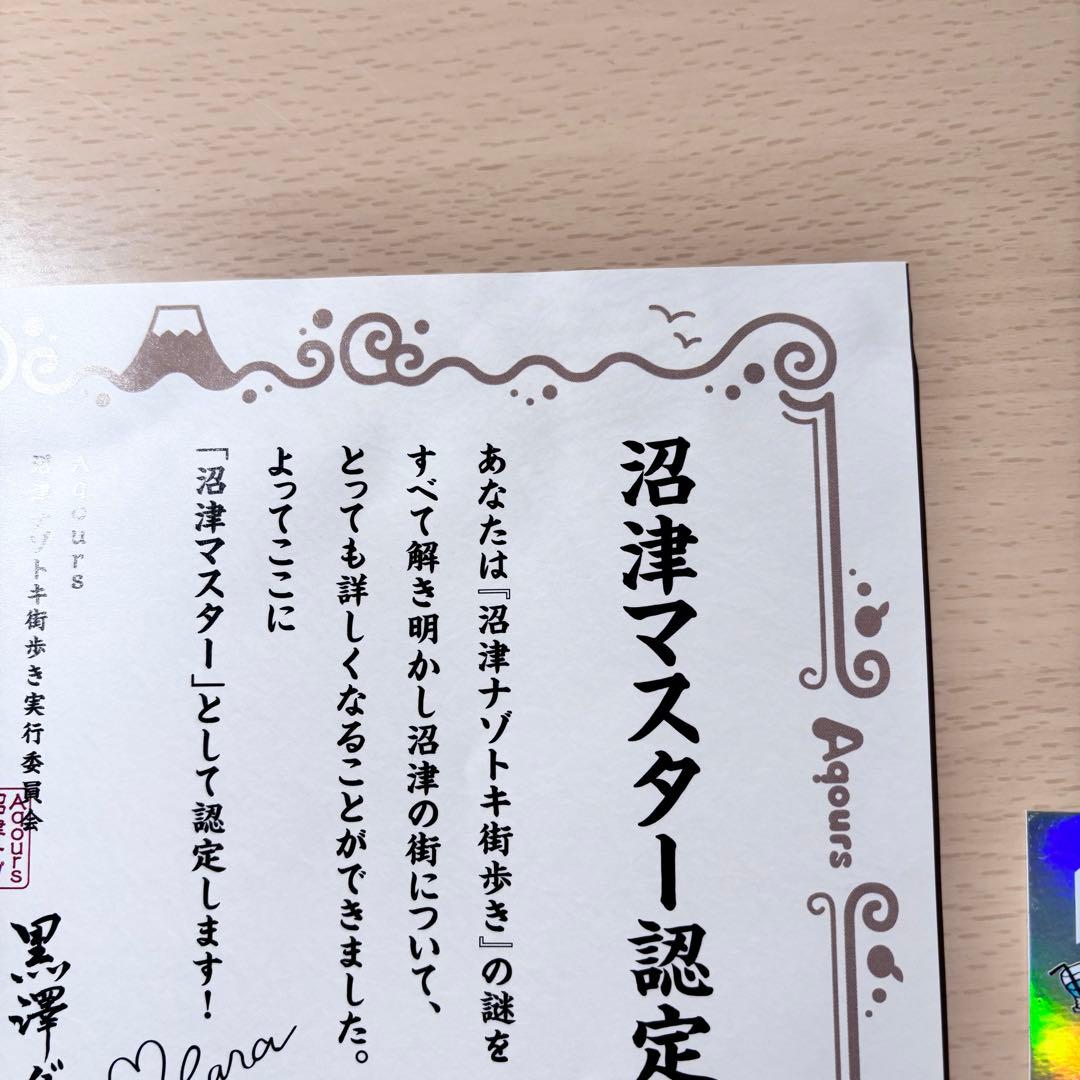 沼津マスター認定
あなたは『沼津ナゾトキ街歩き』の謎を
すべて解き明かし沼津の街について、
とっても詳しくなることができました。
よってここに
「沼津マスター」として認定します！
Aqours
沼津ナゾトキ街歩き実行委員会
Aqours
Aqours
黒澤ダ